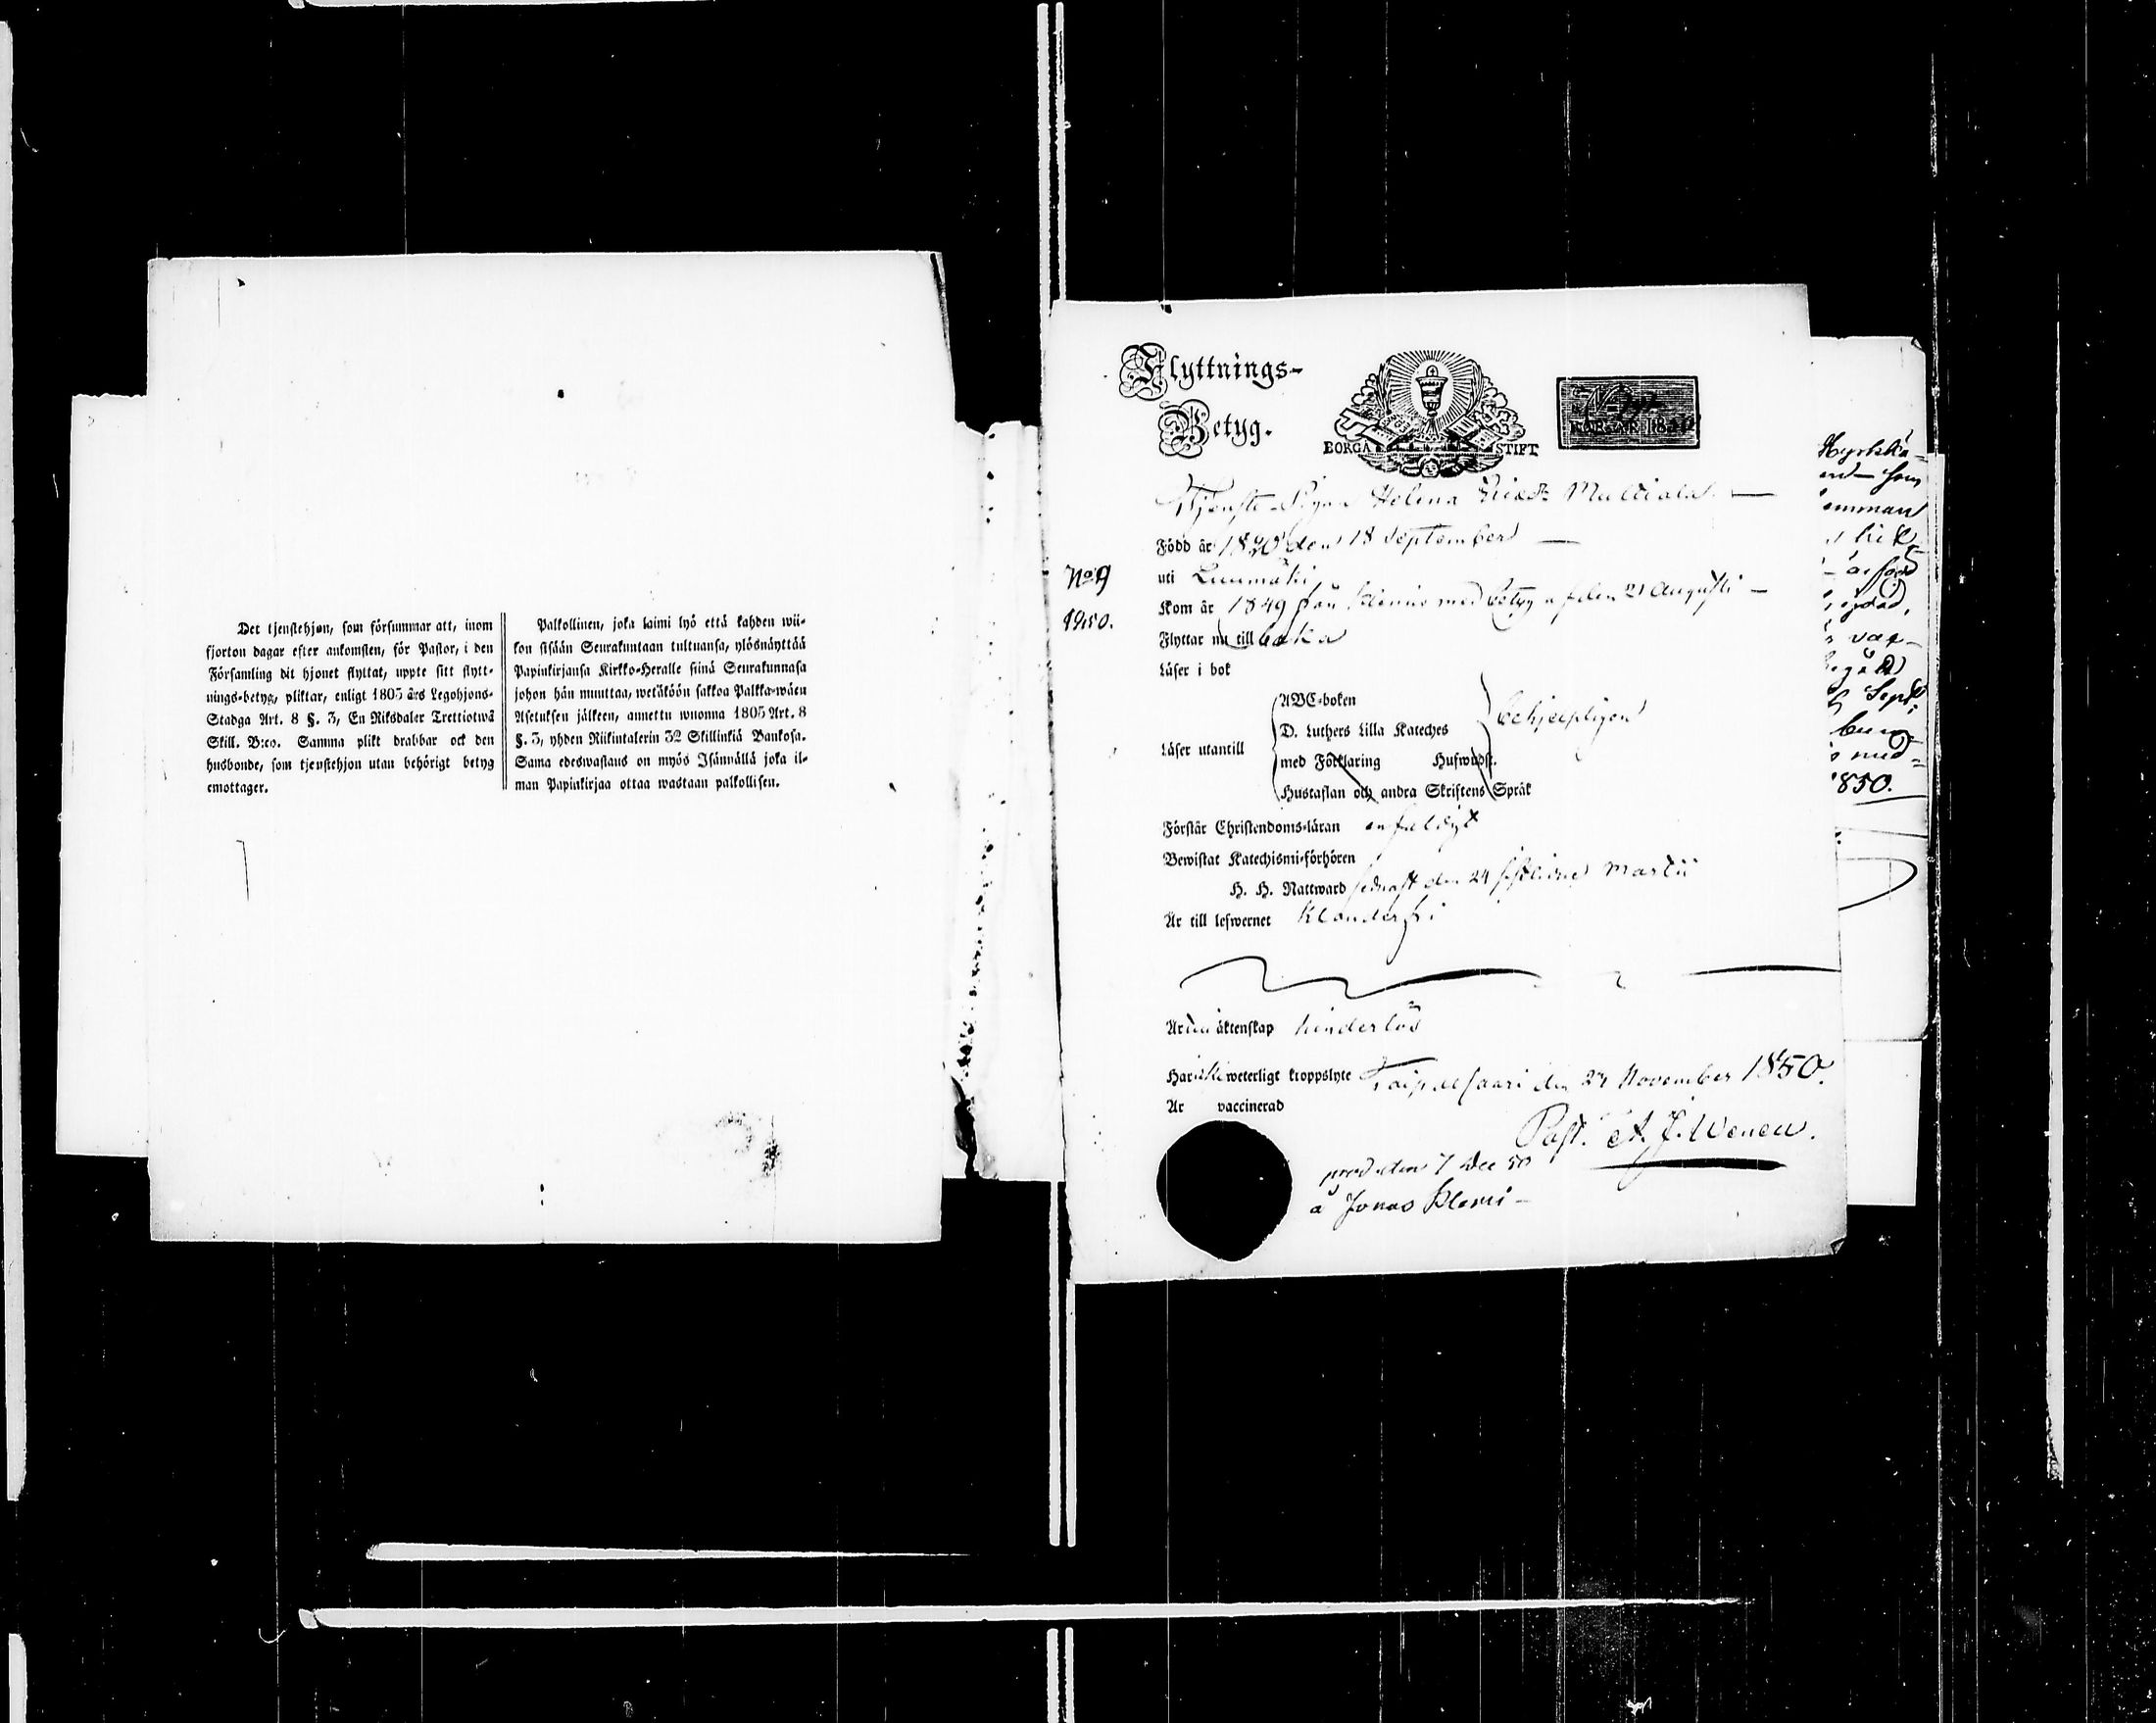 Det tjenstehjon, som försummar att, inom
fjorton dagar efter ankomsten, för Pastor, i den
Församling dit hjonet flyttat, uppte sitt flytt-
nings-betyg, pliktar, enligt 1805 års Legohjons-
Stadga Art. 8 §. 3, En Riksdaler Trettiotwå
Skill. B:co. Samma plikt drabbar ock den
husbonde, som tjenstehjon utan behörigt betyg
emottager.
Palkollinen, joka laimi lyö että kahden wii-
kon sisään Seurakuntaan tultuansa, ylösnäyttää
Papinkirjansa Kirkko-Heralle siinä Seurakunnasa
johon hän muuttaa, wetäköön sakkoa Palkka-wäen
Asetuksen jälkeen, annettu wuonna 1805 Art. 8
§. 3, yhden Riikintalerin 32 Skillinkiä Bankosa.
Sama edeswastaus on myös Isännällä joka il-
man Papinkirjaa ottaa wastaan palkollisen.
Flyttnings-
Betyg.
BORGÅ STIFT
Tjenste-Pigan Helena
Född år 1820 den 18 September
No 9
1850.
uti Luumäki
Kom år 1849 från Klemis med betyg af den 21 Augusti
Flyttar nu till baka
Läser i bok
Läser utantill
ABC-boken
D. Luthers Lilla Kateches
med Förklaring Hufwudst.
Hustaflan och andra Skriftens Språk
behjelpligen
Förstår Christendoms-läran enfaldigt
Bewistat Katechismi-förhören
H. H. Nattward sednast den 24 sistlidne Martii
Är till lefwernet Klanderfri
Är äktenskap hinderlös
Har weterligt kroppslyte Taipalsaari den 24 November 1850.
Är vaccinerad
Past. A. J. Wenell.
7 Dec 50
å Jonas Klemi